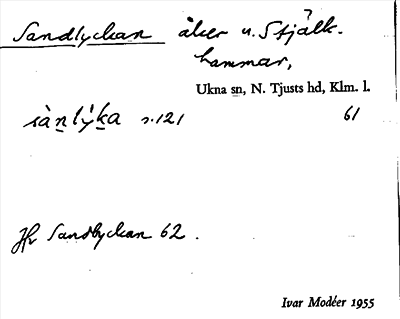 Sandlyckan åker u. Stjälk-
hammar,
Ukna sn, N. Tjusts hd, Klm. l.
sànlýka s. 121 61
Jfr Sandlyckan 62.
Ivar Modéer 1955